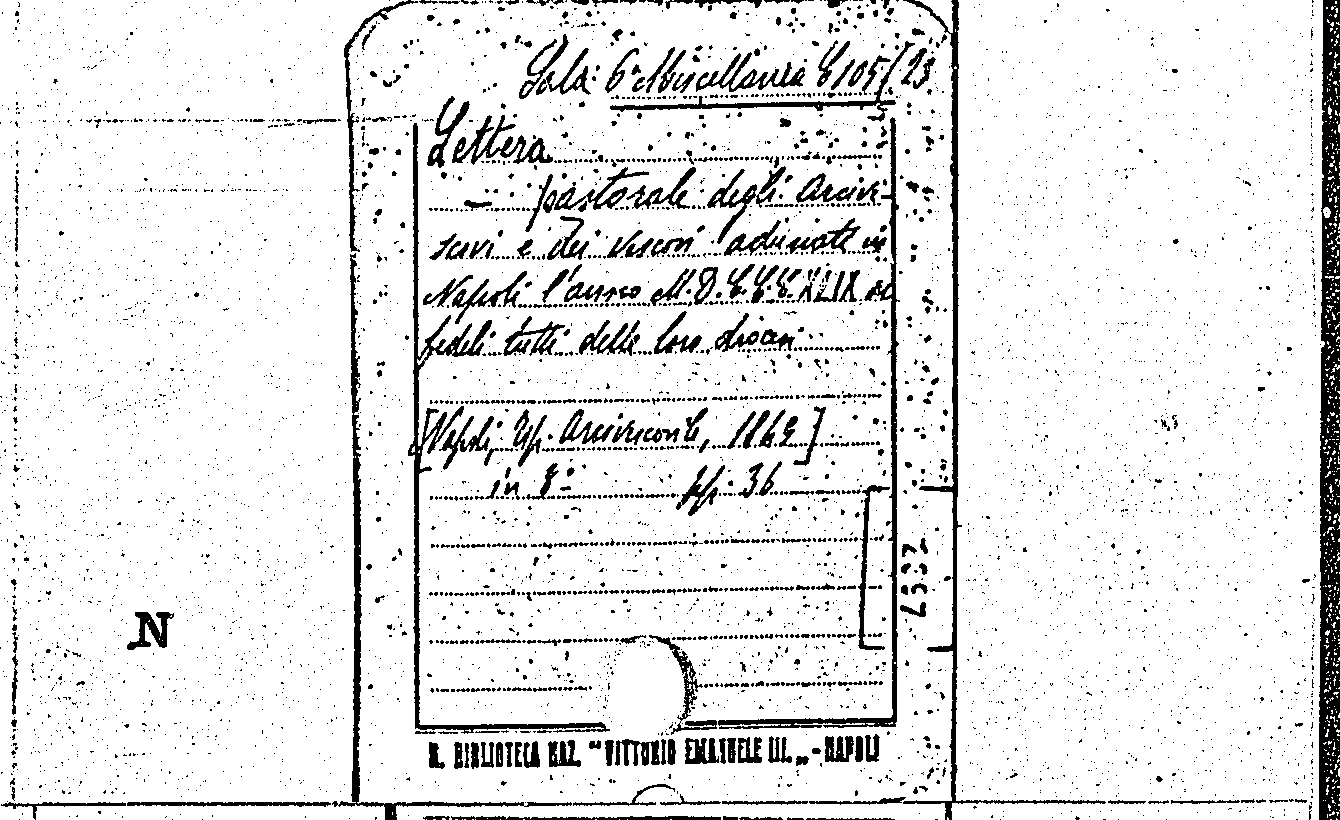 Sala: 6ª Miscellanea C 105/23
Lettera
— pastorale degli Arcive-
scovi e dei vescovi adunati in
Napoli l'anno M.D.C.C.C.XLIX ai
fedeli tutti delle loro diocesi
[Napoli, Tip. Arcivescovile, 1849]
in 8º pp. 36
N
R. BIBLIOTECA NAZ. "VITTORIO EMANUELE III." - NAPOLI